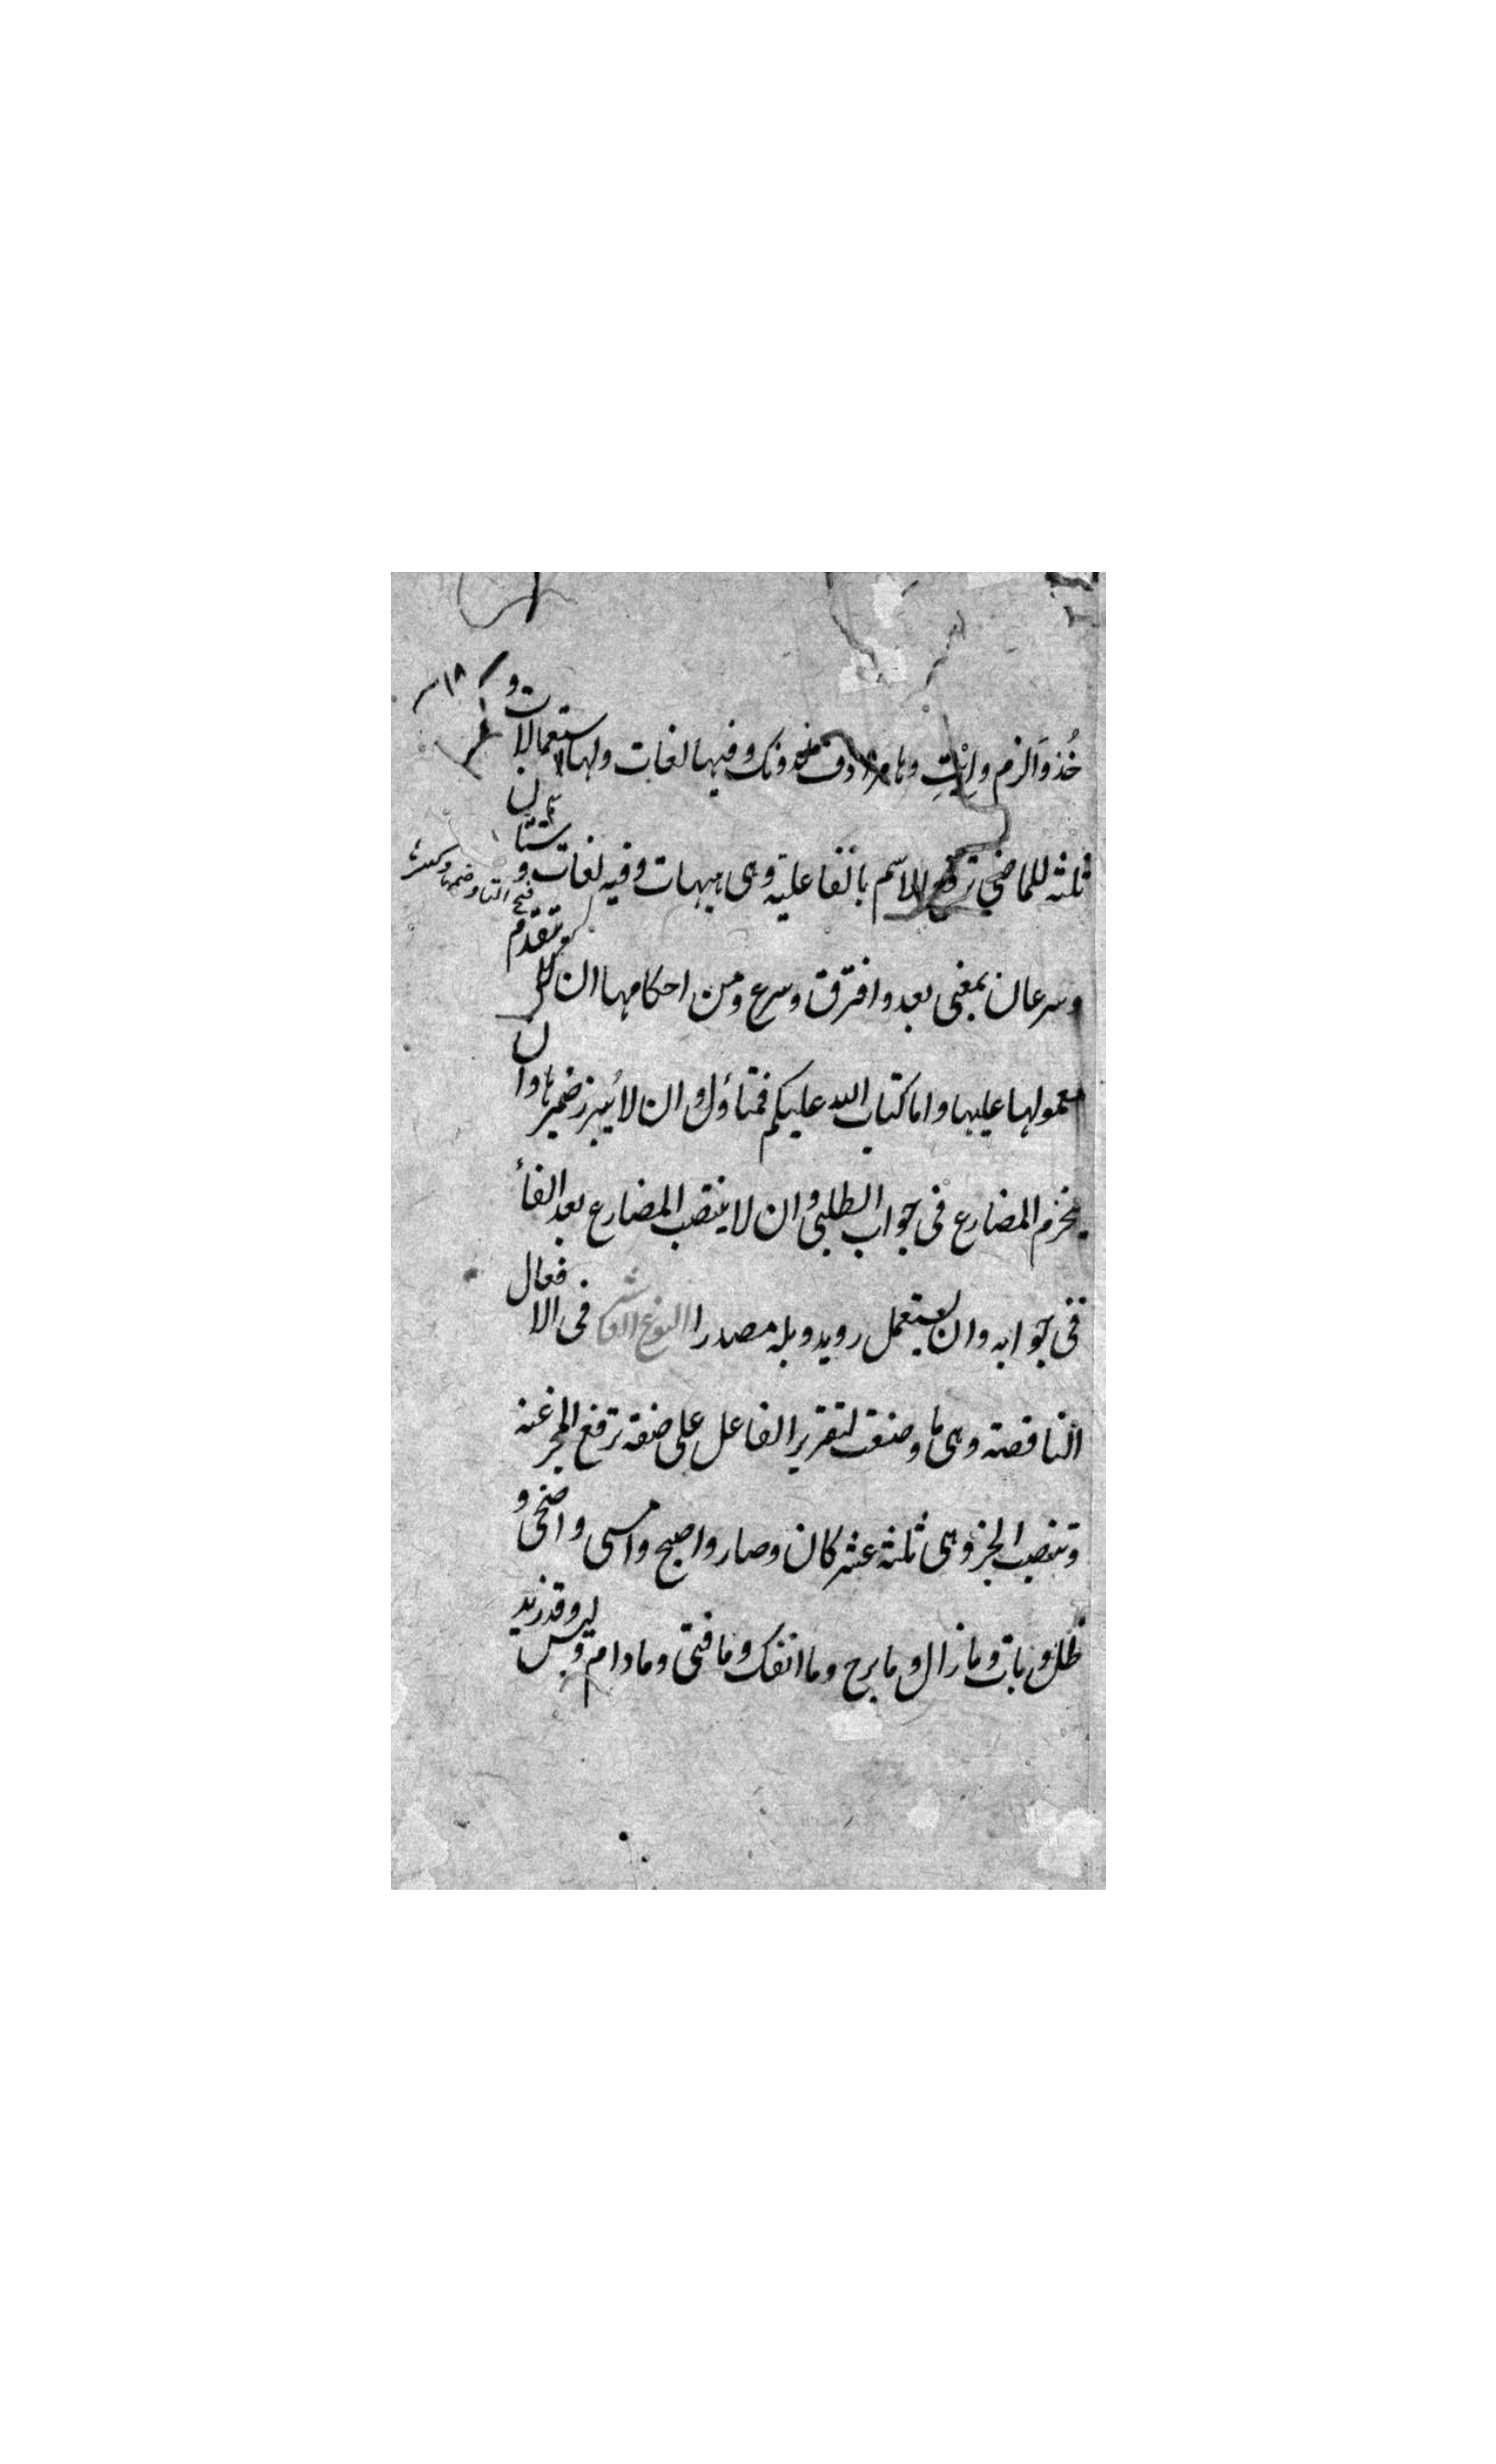 خُذ وَالزم وايْتِ وها مرادف خذ دونك وفيها لغات ولها استعمالات و
ثلثه للماضي ترفع الاسم بالفاعلية وهى هيهات وفيه لغات و شتان
فتح التا وضمها وكسرها
وسرعان بمعنى بعد وافترق وسرع ومن احكامها ان لا يتقدم
معمولها عليها واما كتاب الله عليكم فمتأول وان لا يُبرز ضميرها وان
يجزم المضارع فى جواب الطلبى وان لا ينتصب المضارع بعد الفأ
فى جوابه وان يستعمل رويد وبله مصدرا النوع العاشر فى الافعال
الناقصة وهى ما وضعت لتقرير الفاعل على صفة ترفع المخبر عنه
وتنصب الخبر وهى ثلثة عشر كان وصار واصبح وامسى واضحى و
ظل وبات وما زال وما برح وما انفك وما فتى وما دام وليس وقد زيد